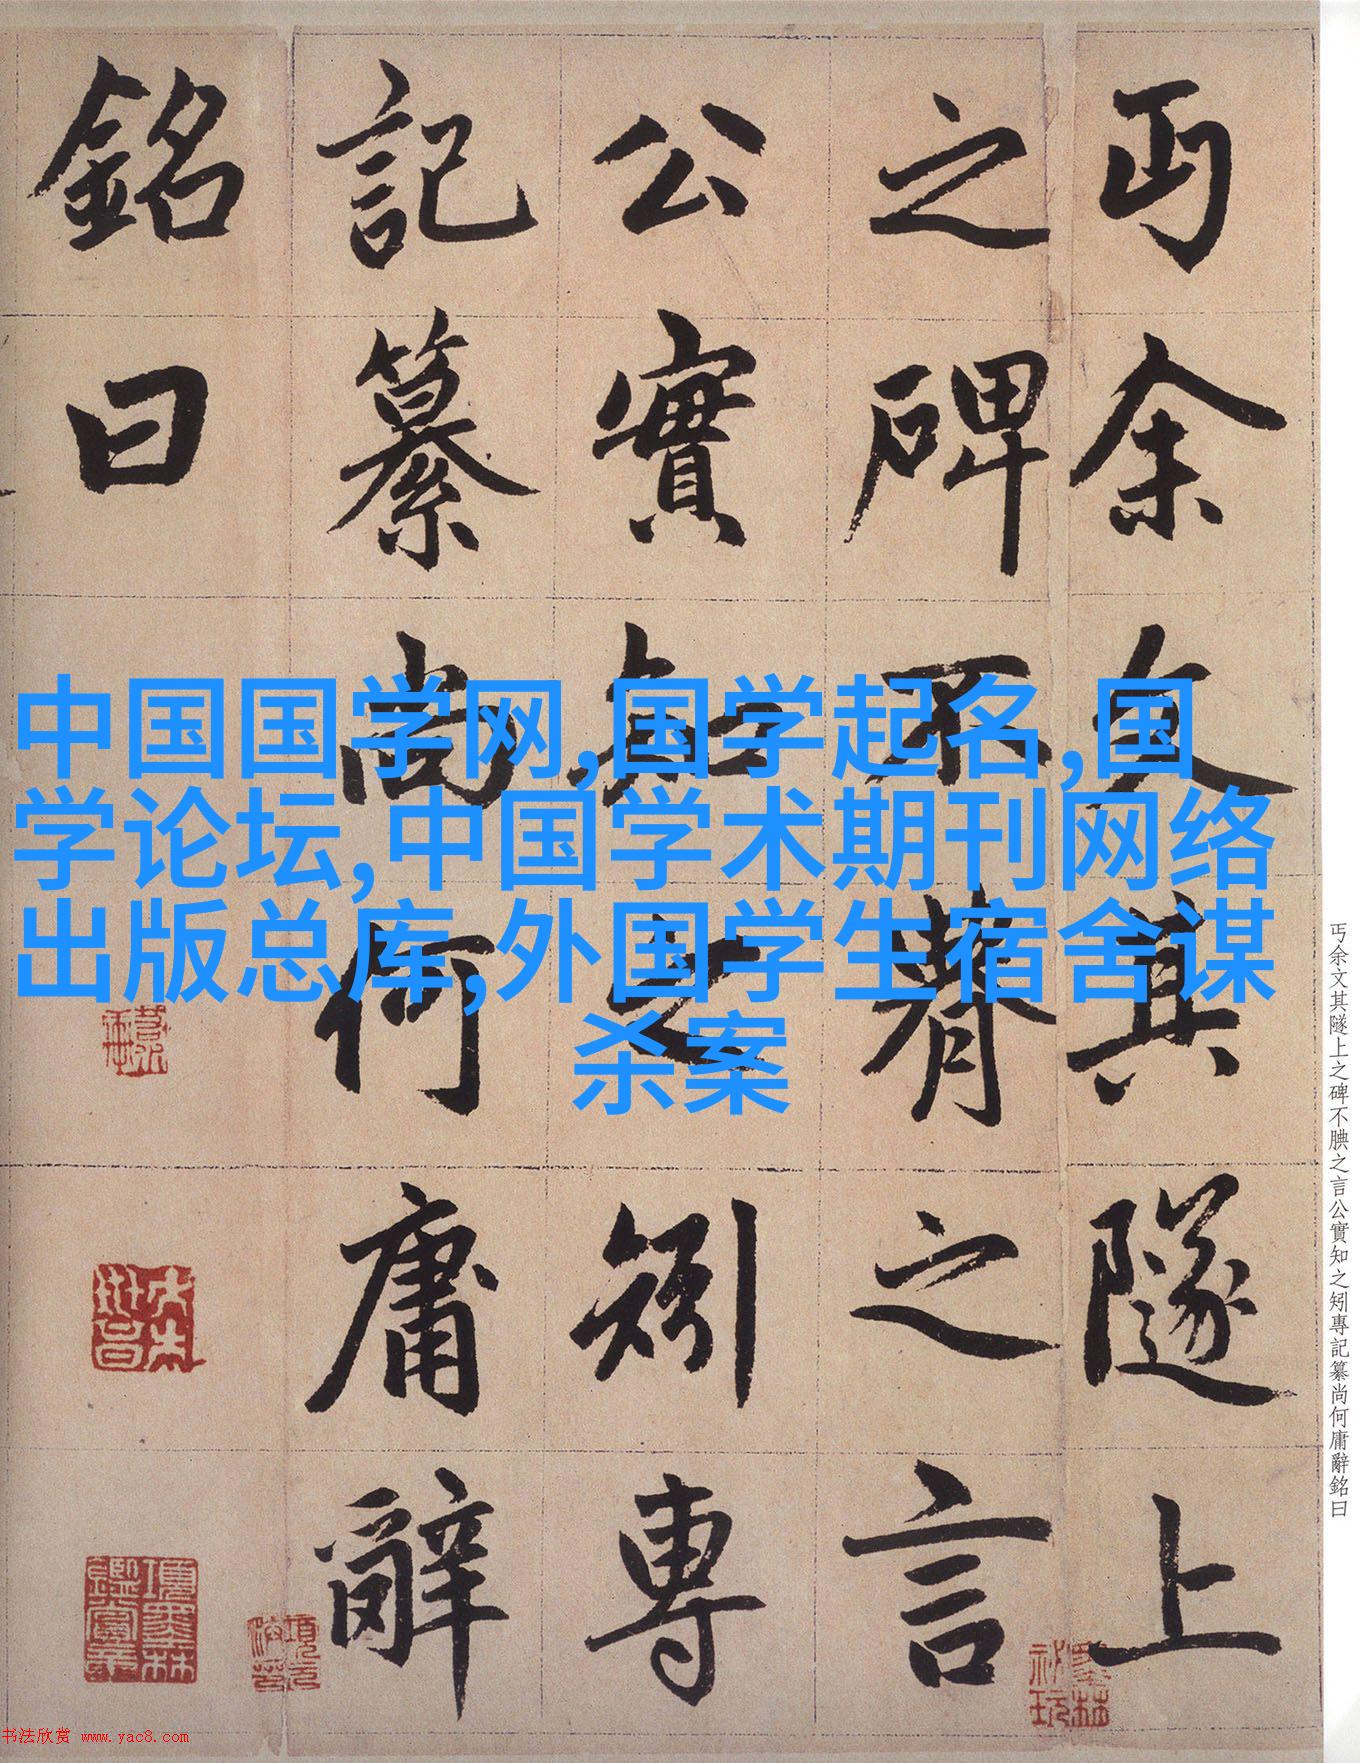 丏余文其隧上
之碑不腆之言
公實知之矧專
記纂尚何庸辭
銘曰
中国国学网,国学起名,国
学论坛,中国学术期刊网络
出版总库,外国学生宿舍谋
杀案
丏余文其隧上之碑不腆之言公實知之矧專記纂尚何庸辭銘曰
书法欣赏 www.yac8.com